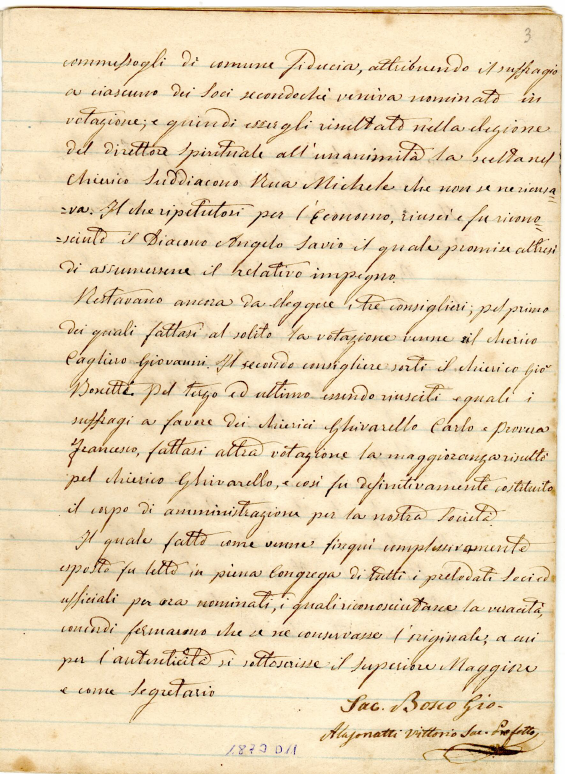 3
commessogli di comune fiducia, attribuendo il suffragio
a ciascuno dei Soci secondochè veniva nominato in
votazione; e quindi essergli risultato nella elezione
del direttore Spirituale all'unanimità la scelta nel
Chierico Suddiacono Rua Michele che non se ne ricusa=
=va. Il che ripetutosi per l'Economo, riuscì e fu ricono=
=sciuto il Diacono Angelo Savio il quale promise altresì
di assumersene il relativo impegno.
Restavano ancora da eleggere i tre consiglieri; pel primo
dei quali fattasi al solito la votazione venne il chierico
Cagliero Giovanni. Il secondo consigliere sortì il chierico Gio
Bonetti. Pel terzo ed ultimo essendo riusciti eguali i
suffragi a favore dei chierici Ghivarello Carlo e Provera
Francesco, fattasi altra votazione la maggioranza risultò
pel chierico Ghivarello, e così fu definitivamente costituito
il corpo di amministrazione per la nostra Società.
Il quale fatto come venne fin qui complessivamente
esposto fu letto in piena Congrega di tutti i prelodati Soci ed
ufficiali per ora nominati, i quali riconosciutane la veracità,
concordi fermarono che se ne conservasse l'originale, a cui
per l'autenticità si sottoscrisse il Superiore Maggiore
e come Segretario
Sac. Bosco Gio.
Alasonatti Vittorio Sac. Prefetto